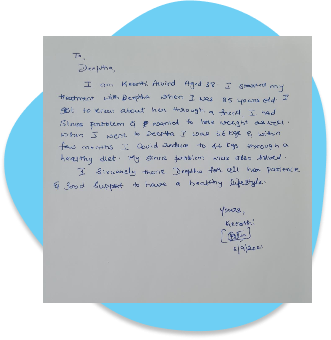 To,
Deeptha,
I am Keerthi Arvind Aged 38 I started my
treatment with Deeptha when I was 35 years old. I
got to know about her through a friend I had
Sinus problem & I wanted to lose weight as well.
When I went to Deeptha I was 68 kgs & within
few months I could reduce to kgs through a
healthy diet. My sinus problem was also solved.
I Sincerely thank Deeptha for all her patience
& Good Support to have a healthy lifestyle.
Yours,
Keerthi